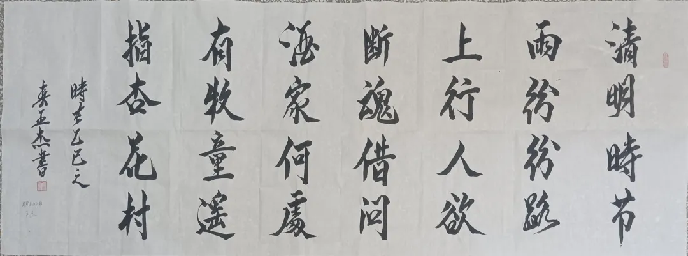 清明時节
雨紛紛路
上行人欲
断魂借问
酒家何處
有牧童遥
指杏花村
時在乙巳之
書